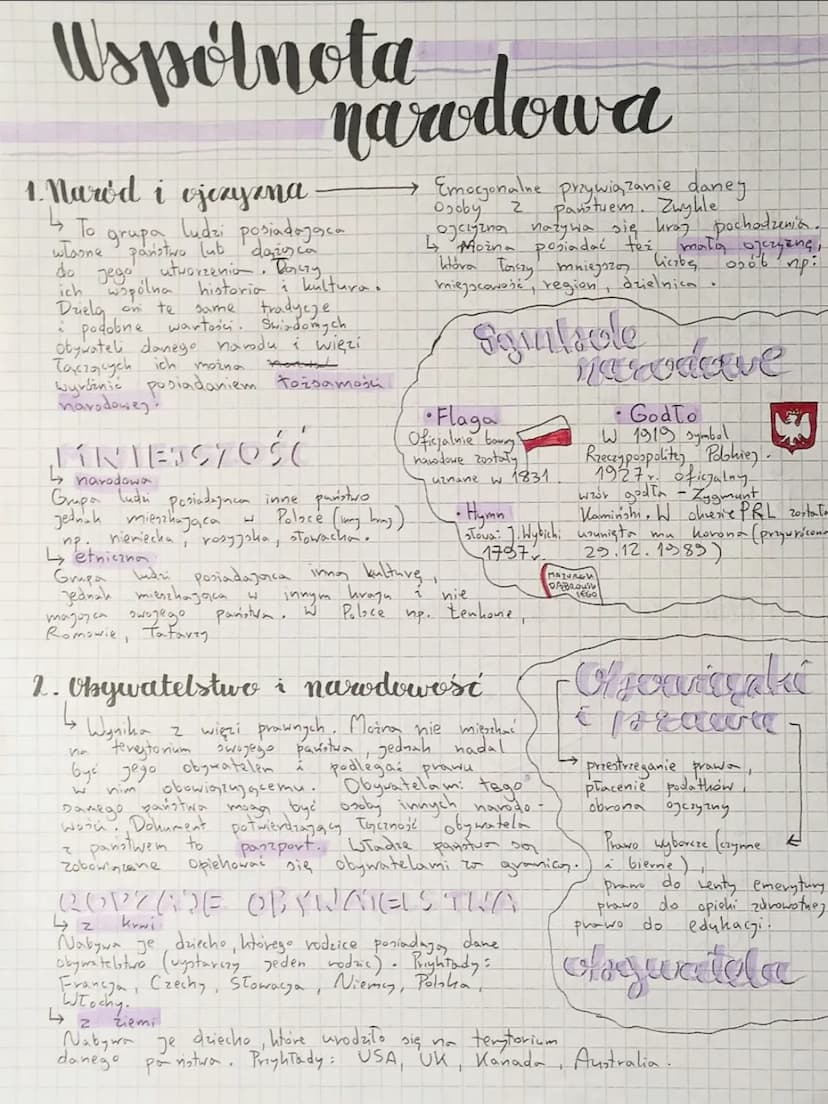 Wspólnota
narodowa
1. Naród i ojczyzna
↳ To grupa ludzi posiadająca
własne państwo lub dążąca
do jego utworzenia. Łączy
ich wspólna historia i kultura.
Dzielą oni te same tradycje
i podobne wartości. Świadomych
obywateli danego narodu i więzi
łączących ich można
wyróżnić posiadaniem tożsamości
narodowej.
Emocjonalne przywiązanie danej
osoby z państwem. Zwykle
ojczyzną nazywa się kraj pochodzenia.
↳ Można posiadać też małą ojczyznę,
która łączy mniejszą liczbę osób np:
miejscowość, region, dzielnica.
Symbole
narodowe
• Flaga
Oficjalnie barwy
narodowe zostały
uznane w 1831.
• Hymn
słowa: J. Wybicki
1797r.
MAZUREK
DĄBROWS
KIEGO
• Godło
W 1919 symbol
Rzeczypospolitej Polskiej.
1927r. oficjalny
wzór godła - Zygmunt
Kamiński. W okresie PRL została
usunięta mu korona (przywrócona
29.12.1989)
MNIEJSZOŚĆ
↳ narodowa
Grupa ludzi posiadająca inne państwo
jednak mieszkająca w Polsce (inny kraj)
np. niemiecka, rosyjska, słowacka.
↳ etniczna
Grupa ludzi posiadająca inną kulturę,
jednak mieszkająca w innym kraju i nie
mająca swojego państwa. W Polsce np. Łemkowie,
Romowie, Tatarzy
2. Obywatelstwo i narodowość
↳ Wynika z więzi prawnych. Można nie mieszkać
na terytorium swojego państwa, jednak nadal
być jego obywatelem i podlegać prawu
w nim obowiązującemu. Obywatelami tego
danego państwa mogą być osoby innych narodo-
wości. Dokument potwierdzający łączność obywatela
z państwem to paszport. Władze państwa są
zobowiązane opiekować się obywatelami za granicą.
RODZAJE OBYWATELSTWA
↳ z krwi
Nabywa je dziecko, którego rodzice posiadają dane
obywatelstwo (wystarczy jeden rodzic). Przykłady:
Francja, Czechy, Słowacja, Niemcy, Polska,
Włochy.
↳ z ziemi
Nabywa je dziecko, które urodziło się na terytorium
danego państwa. Przykłady: USA, UK, Kanada, Australia.
Obowiązki
i prawa
przestrzeganie prawa,
płacenie podatków,
obrona ojczyzny
Prawo wyborcze (czynne
i bierne),
prawo do renty emerytury
prawo do opieki zdrowotnej
prawo do edukacji.
obywatela